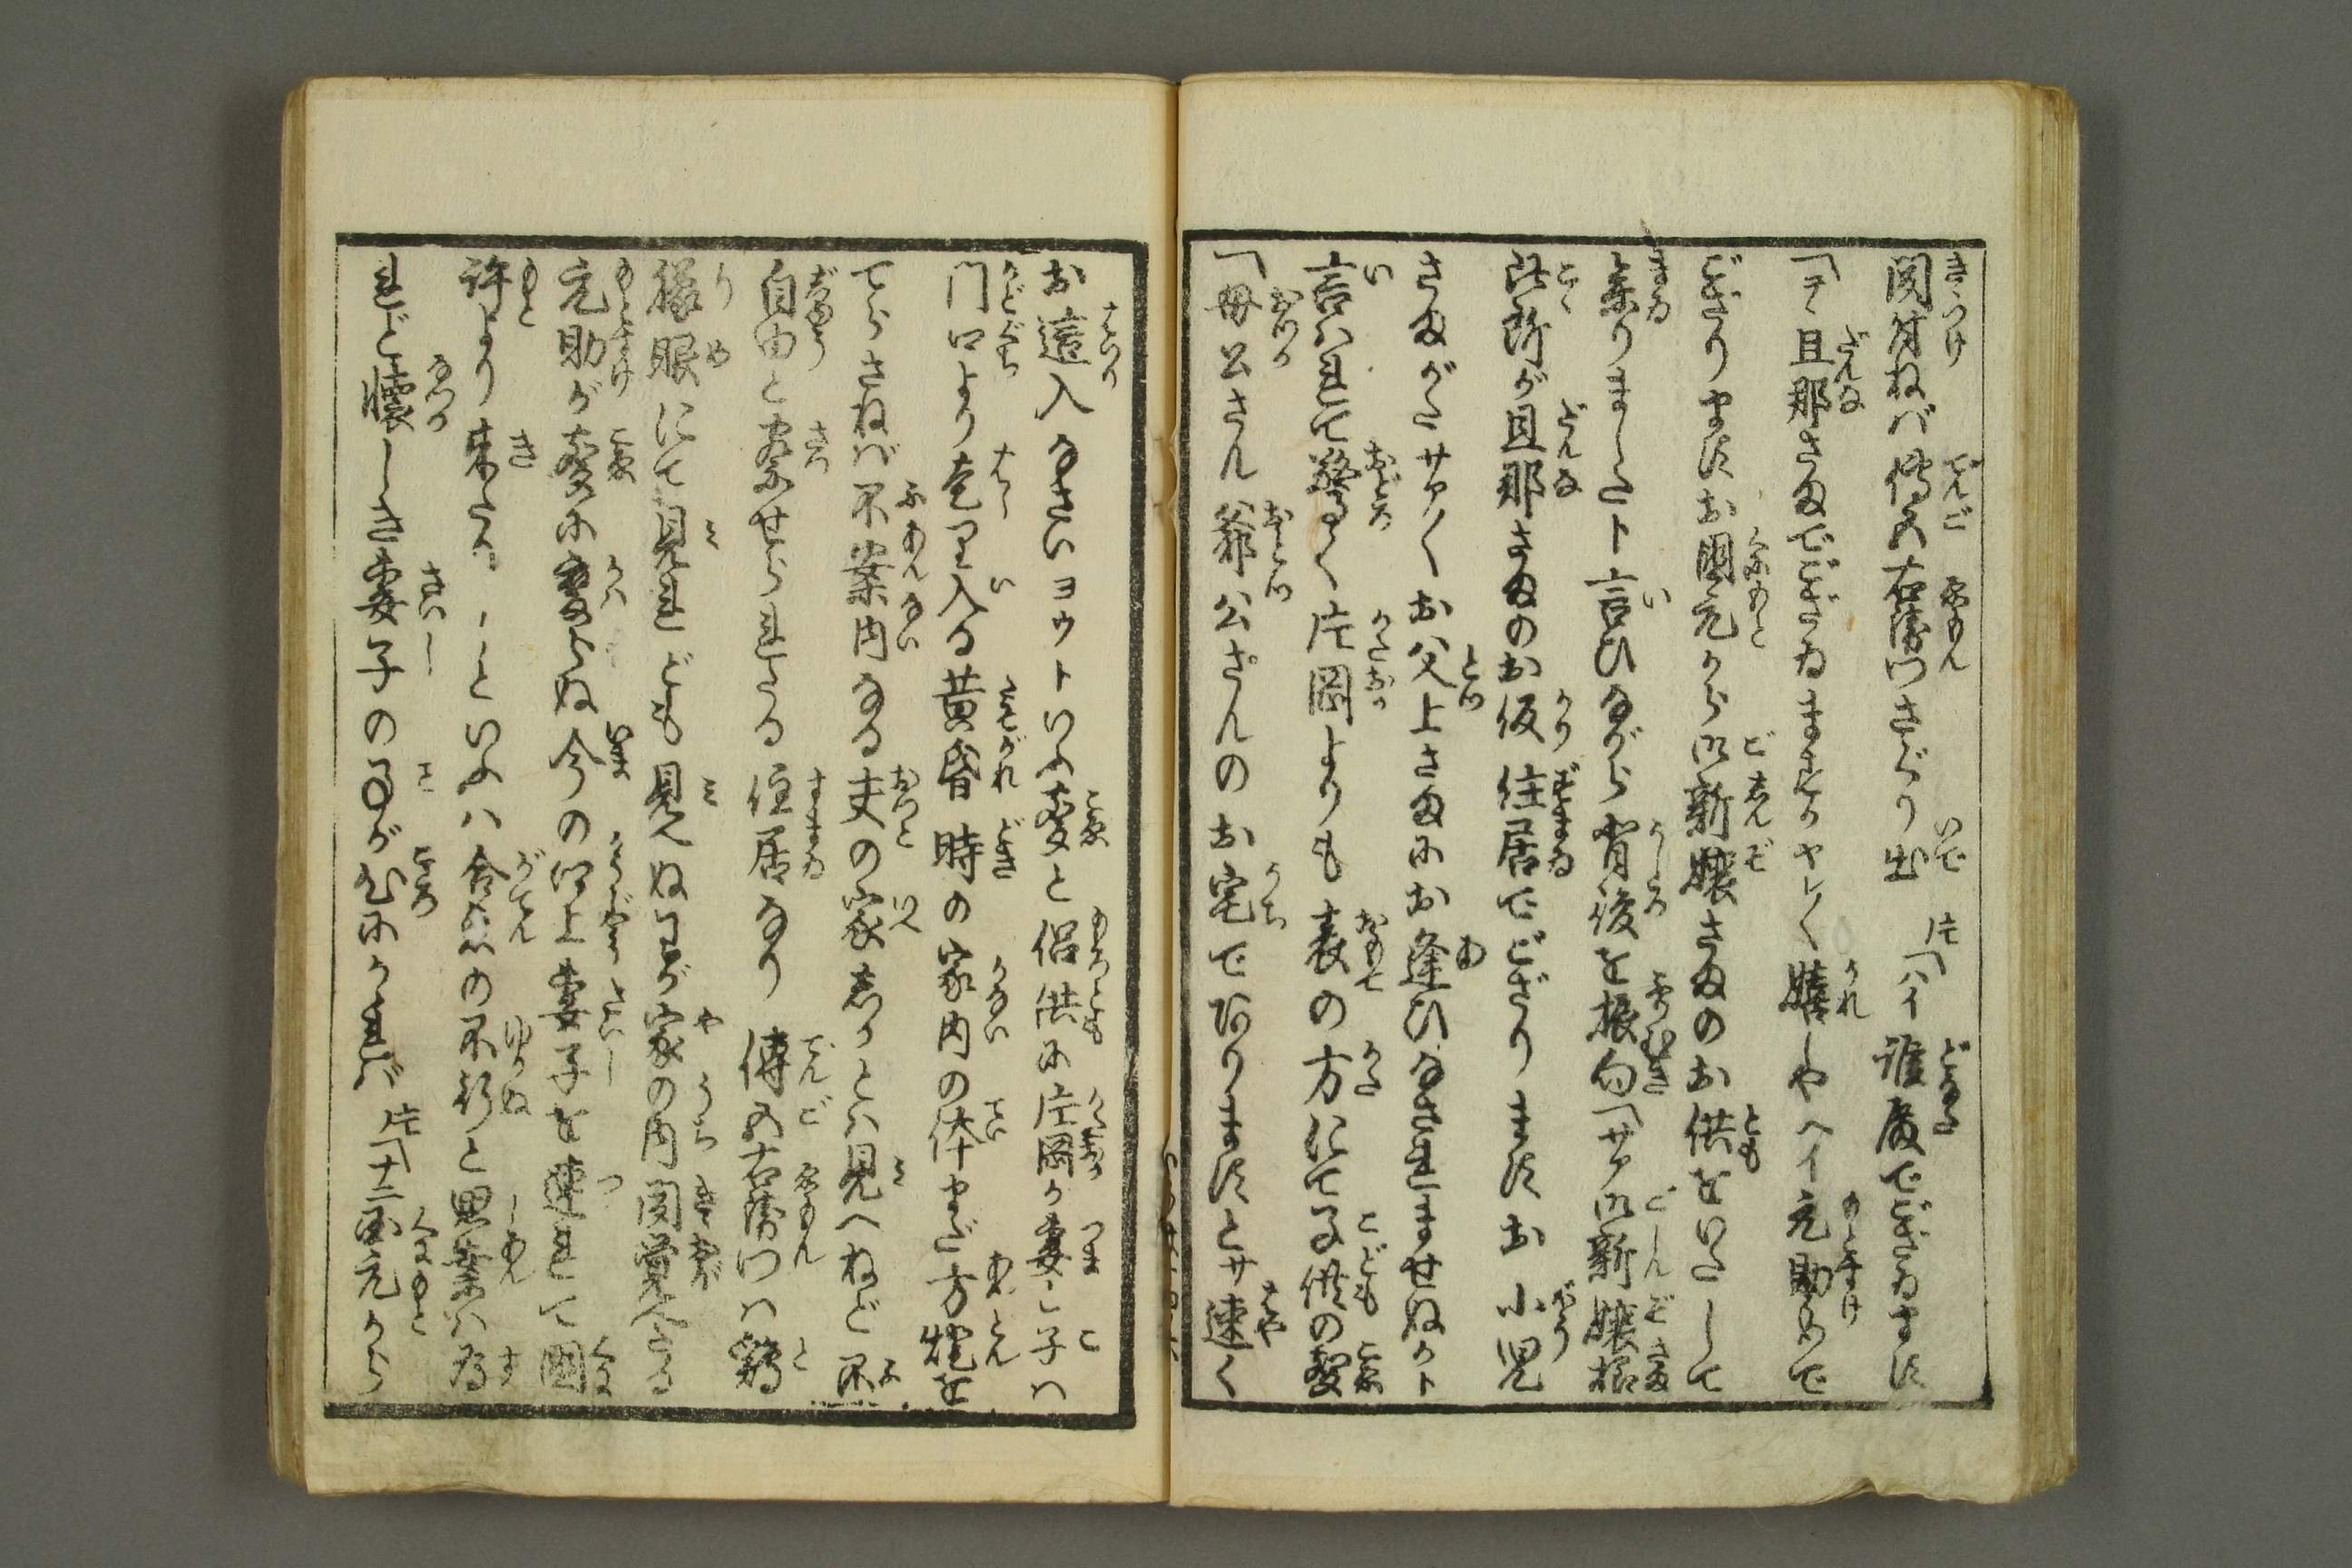 聞付ねば傳五右衛門さぐり出 片「ハイ誰殿でござゐます
「ヲヽ旦那さまでござゐますかヤレ〳〵嬉しやヘイ元助めで
ござります お國元から御新孃さまのお供をいたして
參りましたト言ひながら背後を振向「サア御新孃様
此所が旦那さまのお仮住居でござります お小児
さまがたサア〳〵お父上さまにお逢ひなされませぬかト
言はれて驚く片岡よりも表の方にて子供の聲
「母公さん爺公さんのお宅でありますとサ速く
お這入なさいヨウトいふ聲と侶供に片岡が妻と子ハ
門口より走り入る黄昏時の家内の体まだ方燈を
てらさねば不案内なる夫の家あかりとハ見へねど不
自由と察せられたる住居なり 傳五右衛門ハ鷄
眼にて見れども見へぬ我が家の内聞覚へたる
元助が聲に變らぬ今の口上妻子を連れて國
許より來たりしといふハ合点の不行と思案ハす
れど懐しき妻子の事が心にかゝれば 片「十二国元から